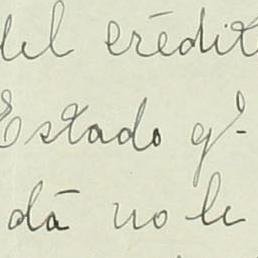 del crédit
Estado q'-
dá no le